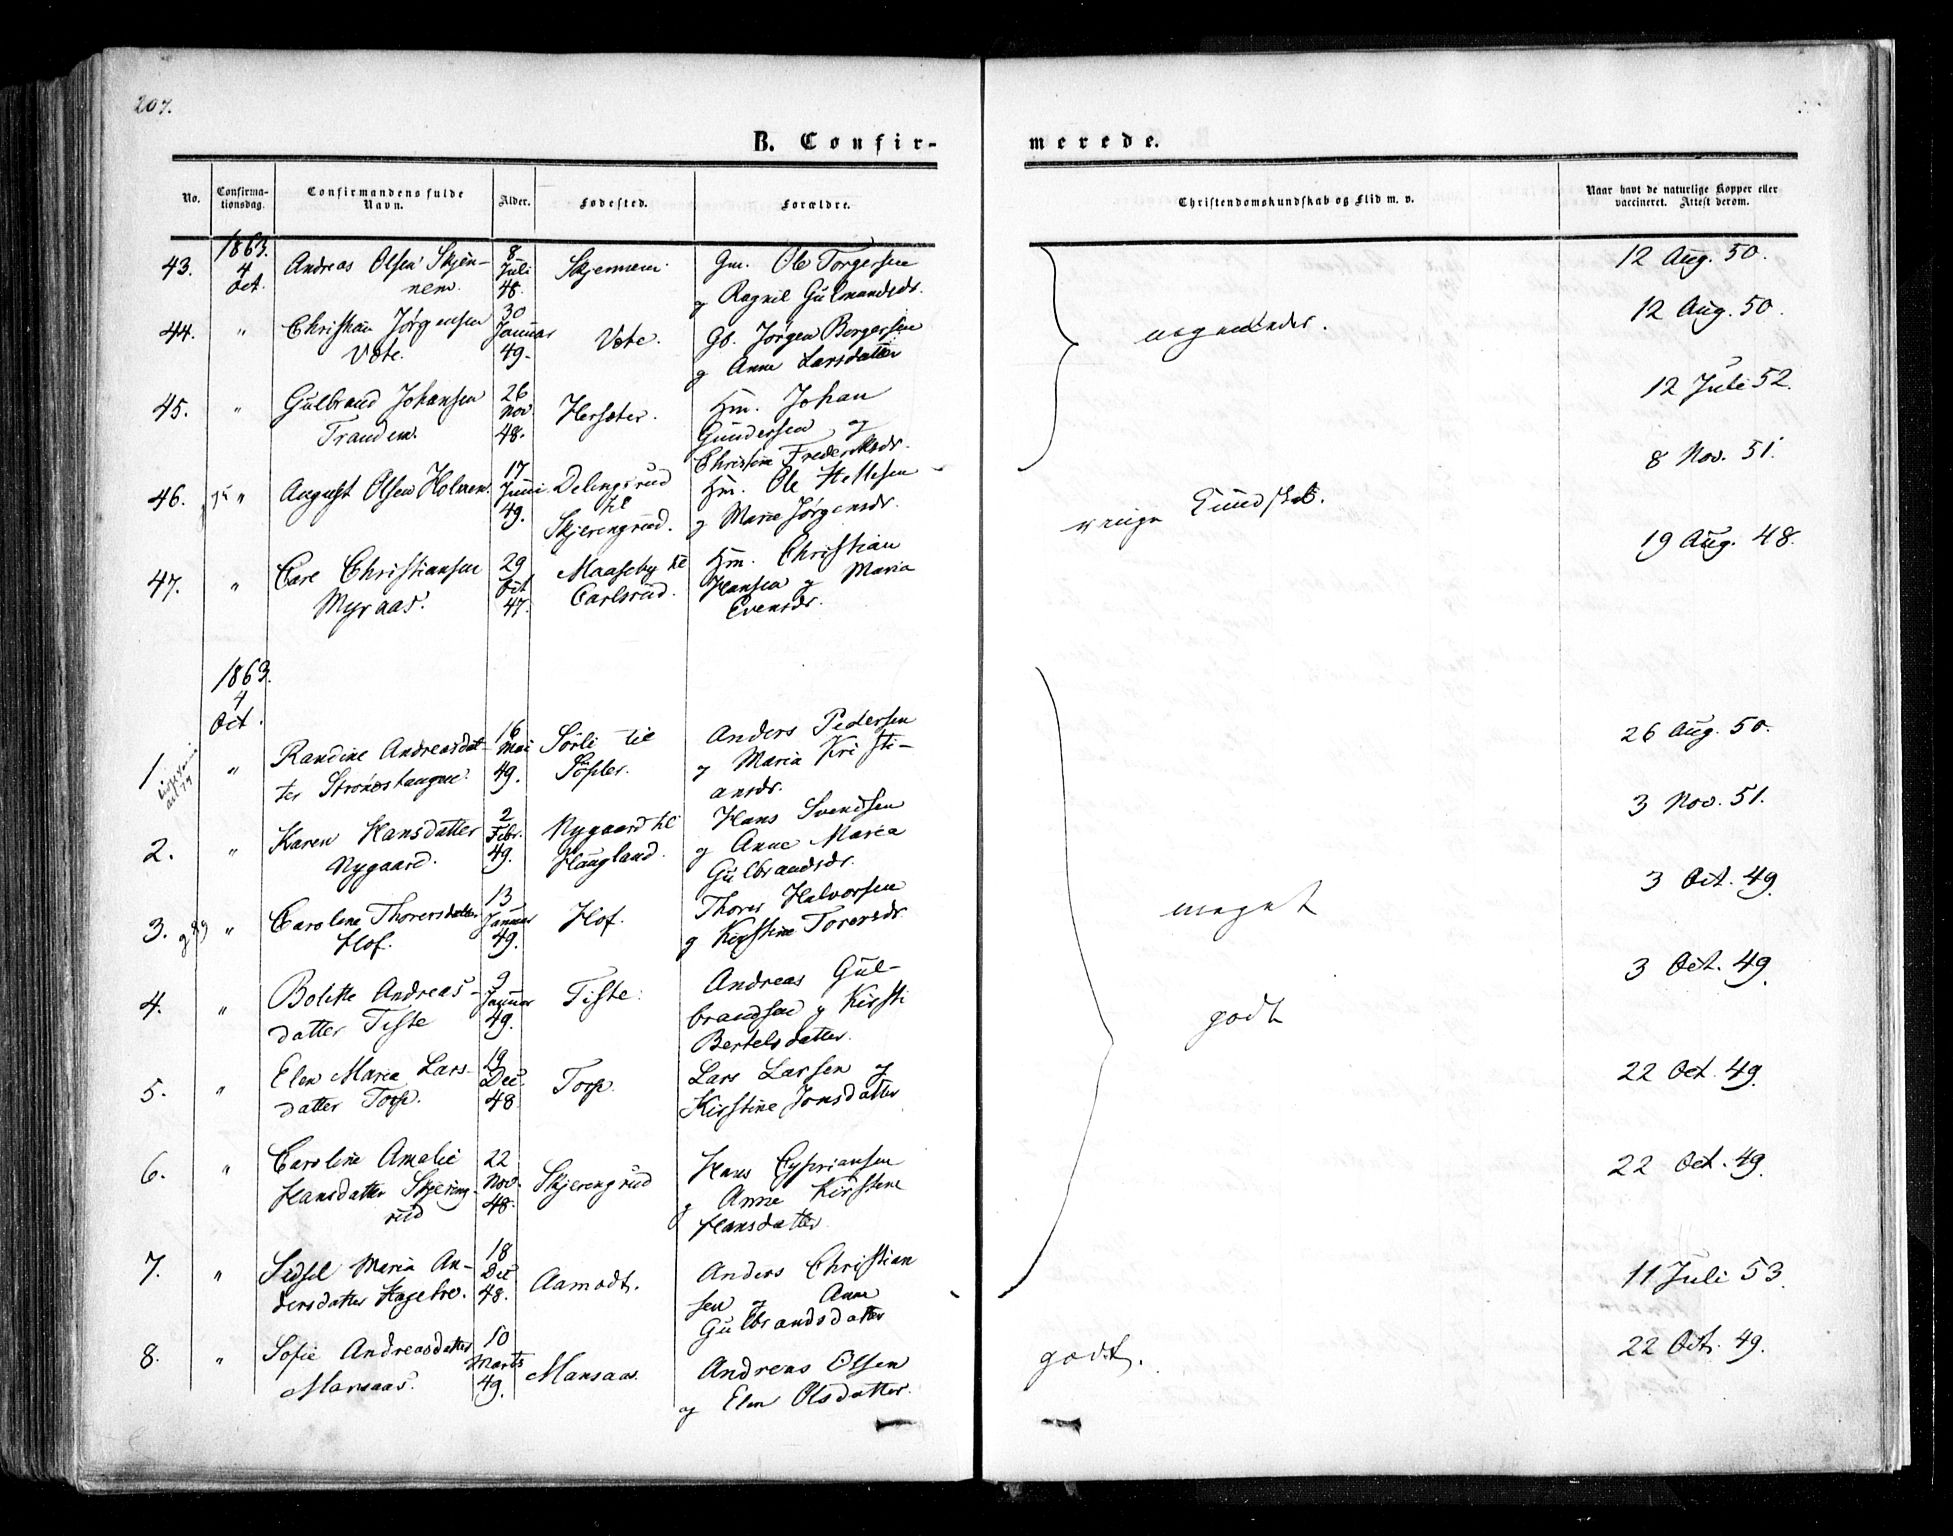 207.
B. Confir-
merede.
No.
Confirma-
tionsdag.
Confirmandens fulde
Navn.
Alder.
Fødested.
Forældre.
Christendomskundskab og Flid m. v.
Naar havt de naturlige Kopper eller
vaccineret. Attest derom.
1863.
43. 4 Oct. Andreas Olsen Skjen-
nem. 8 Juli 48. Skjennem. Gm. Ole Torgersen
og Ragnil Gulmandsdr. 12 Aug. 50.
44. " Christian Jørgensen
Væte. 30 Januar 49. Væte. Gb. Jørgen Borgersen
og Anne Larsdatter 12 Aug. 50.
45. " Gulbrand Johansen
Trandem. 26 Nov. 48. Hersæter. Hm. Johan
Gundersen og
Christine Frederiksdr. 12 Juli 52.
46. " August Olsen Holmen. 17 Juni 49. Delingsrud
til
Skjerengrud. Hm. Ole Hellesen
og Marie Jørgensdr. Kundskab. 8 Nov. 51.
47. " Carl Christiansen
Myraas. 29 Oct 47. Maaseby til
Carlsrud. Hm. Christian
Hansen og Maria
Evensdr. 19 Aug. 48.
1863.
4
Oct.
1. " Randine Andreasdat-
ter Strønestangen. 16 Mai 49. Sørli til
Anders Pedersen
og Maria Kristi-
ansdr. 26 Aug. 50.
2. " Karen Hansdatter
Nygaard. 2 Febr. 49. Nygaard til
Haugland. Hans Svendsen
og Anne Maria
Gulbrandsdr. 3 Nov. 51.
3. " Caroline Thorersdatter
Hof. 13 Januar 49. Hof. Thorer Halvorsen
og Kirstine Torersdr. meget 3 Oct. 49.
4. " Bolette Andreas-
datter Tiste 9 Januar 49. Tiste. Andreas Gul-
brandsen og Kirsti
Bertelsdatter. godt 3 Oct. 49.
5. " Elen Maria Lars-
datter Torp. 19 Dec. 48 Torp. Lars Larsen og
Kirstine Jonsdatter 22 Oct. 49.
6. " Caroline Amalie
Hansdatter Skjereng-
rud 22 Nov. 48. Skjerengrud Hans Cypriansen
og Anne Kirstine
Hansdatter. 22 Oct. 49.
7. " Sidsel Maria An-
dersdatter Hagebro. 18 Dec 48. Aamodt. Anders Christian
sen og Anne
Gulbrandsdatter 11 Juli 53.
8. " Sofie Andreasdatter
Mansaas. 10 Marts 49. Mansaas. Andreas Olsen
og Elen Olsdatter. godt. 22 Oct. 49.